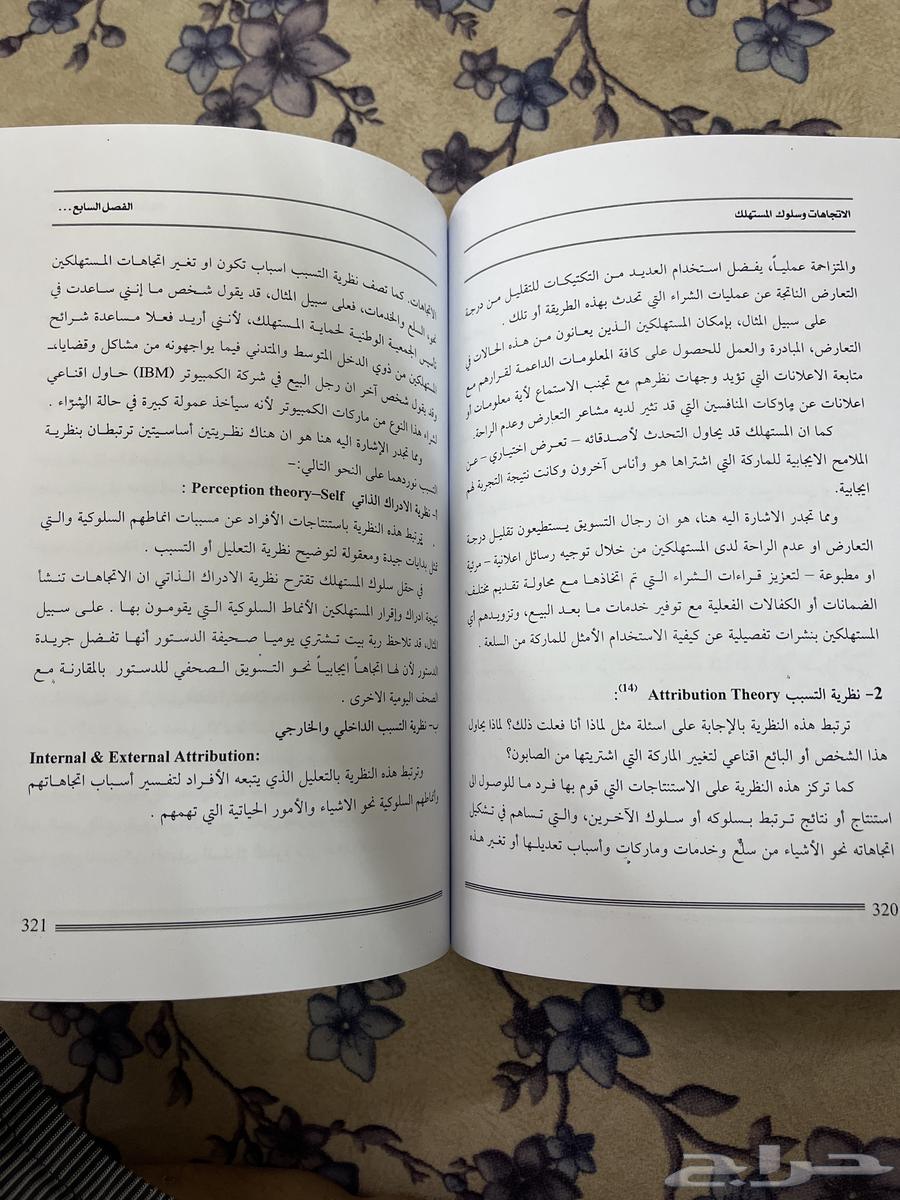 الاتجاهات وسلوك المستهلك
والمتزاحمة عملياً، يفضل استخدام العديد من التكتيكات للتقليل من درجة
التعارض الناتجة عن عمليات الشراء التي تحدث بهذه الطريقة أو تلك .
على سبيل المثال، بإمكان المستهلكين الذين يعانون من هذه الحالات في
التعارض، المبادرة والعمل للحصول على كافة المعلومات الداعمة لقرارهم مع
متابعة الاعلانات التي تؤيد وجهات نظرهم مع تجنب الاستماع لأية معلومات أو
اعلانات عن ماركات المنافسين التي قد تثير لديه مشاعر التعارض وعدم الراحة.
كما ان المستهلك قد يحاول التحدث لأصدقائه – تعرض اختياري – عن
الملامح الايجابية للماركة التي اشتراها هو وأناس آخرون وكانت نتيجة التجربة لهم
ايجابية.
ومما تجدر الاشارة اليه هنا، هو ان رجال التسويق يستطيعون تقليل درجة
التعارض او عدم الراحة لدى المستهلكين من خلال توجيه رسائل اعلانية – مرئية
او مطبوعة – لتعزيز قراءات الشراء التي تم اتخاذها مع محاولة تقديم مختلف
الضمانات أو الكفالات الفعلية مع توفير خدمات ما بعد البيع، وتزويدهم أي
المستهلكين بنشرات تفصيلية عن كيفية الاستخدام الأمثل للماركة من السلعة .
2- نظرية التسبب Attribution Theory (14):
ترتبط هذه النظرية بالإجابة على اسئلة مثل لماذا أنا فعلت ذلك؟ لماذا يحاول
هذا الشخص أو البائع اقناعي لتغيير الماركة التي اشتريتها من الصابون؟
كما تركز هذه النظرية على الاستنتاجات التي قوم بها فرد ما للوصول الى
استنتاج أو نتائج ترتبط بسلوكه أو سلوك الآخرين، والتي تساهم في تشكيل
اتجاهاته نحو الأشياء من سلع وخدمات وماركات وأسباب تعديلها أو تغير هذه
320
الفصل السابع ...
الاتجاهات. كما تصف نظرية التسبب اسباب تكون او تغير اتجاهات المستهلكين
نحو السلع والخدمات، فعلى سبيل المثال، قد يقول شخص ما إنني ساعدت في
تأسيس الجمعية الوطنية لحماية المستهلك، لأنني أريد فعلا مساعدة شرائح
المستهلكين من ذوي الدخل المتوسط والمتدني فيما يواجهونه من مشاكل وقضايا،
وقد يقول شخص آخر ان رجل البيع في شركة الكمبيوتر (IBM) حاول اقناعي
لشراء هذا النوع من ماركات الكمبيوتر لأنه سيأخذ عمولة كبيرة في حالة الشراء .
ومما تجدر الإشارة اليه هنا هو ان هناك نظريتين أساسيتين ترتبطان بنظرية
التسبب نوردهما على النحو التالي:–
أ- نظرية الادراك الذاتي Perception theory–Self :
ترتبط هذه النظرية باستنتاجات الأفراد عن مسببات انماطهم السلوكية والتي
تمثل بدايات جيدة ومعقولة لتوضيح نظرية التعليل أو التسبب .
في حقل سلوك المستهلك تقترح نظرية الادراك الذاتي ان الاتجاهات تنشأ
نتيجة ادراك وإقرار المستهلكين الأنماط السلوكية التي يقومون بها . على سبيل
المثال، قد تلاحظ ربة بيت تشتري يوميا صحيفة الدستور أنها تفضل جريدة
الدستور لأن لها اتجاهاً ايجابياً نحو التسويق الصحفي للدستور بالمقارنة مع
الصحف اليومية الاخرى .
ب- نظرية التسبب الداخلي والخارجي
Internal & External Attribution:
وترتبط هذه النظرية بالتعليل الذي يتبعه الأفراد لتفسير أسباب اتجاهاتهم
وأنماطهم السلوكية نحو الاشياء والأمور الحياتية التي تهمهم .
321
حراج